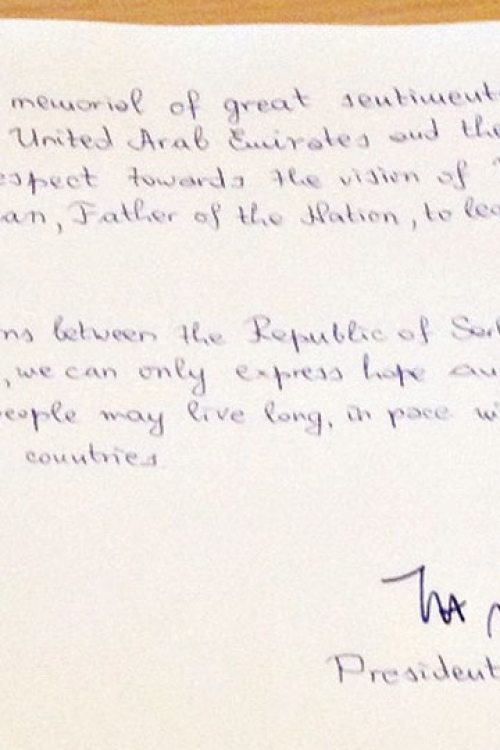 memorial of great sentiment
United Arab Emirates and the
espect towards the vision of
an, Father of the Nation, to lea
ns between the Republic of Serb
, we can only express hope an
eople may live long, in pace wi
countries
President